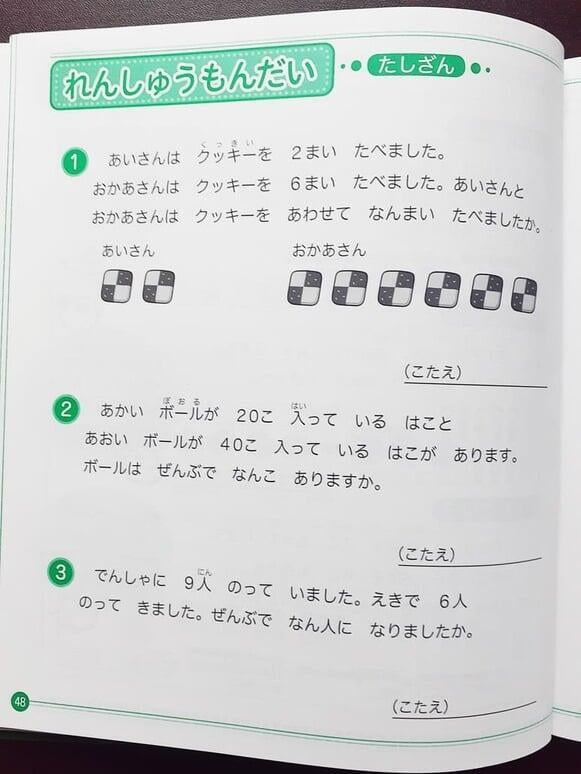 れんしゅうもんだい
たしざん
1
くっきい
あいさんは クッキーを 2まい たべました。
おかあさんは クッキーを 6まい たべました。あいさんと
おかあさんは クッキーを あわせて なんまい たべましたか。
あいさん おかあさん
(こたえ)
2
ぼおる はい
あかい ボールが 20こ 入って いる はこと
あおい ボールが 40こ 入って いる はこが あります。
ボールは ぜんぶで なんこ ありますか。
(こたえ)
3
にん
でんしゃに 9人 のって いました。えきで 6人
のって きました。ぜんぶで なん人に なりましたか。
(こたえ)
48